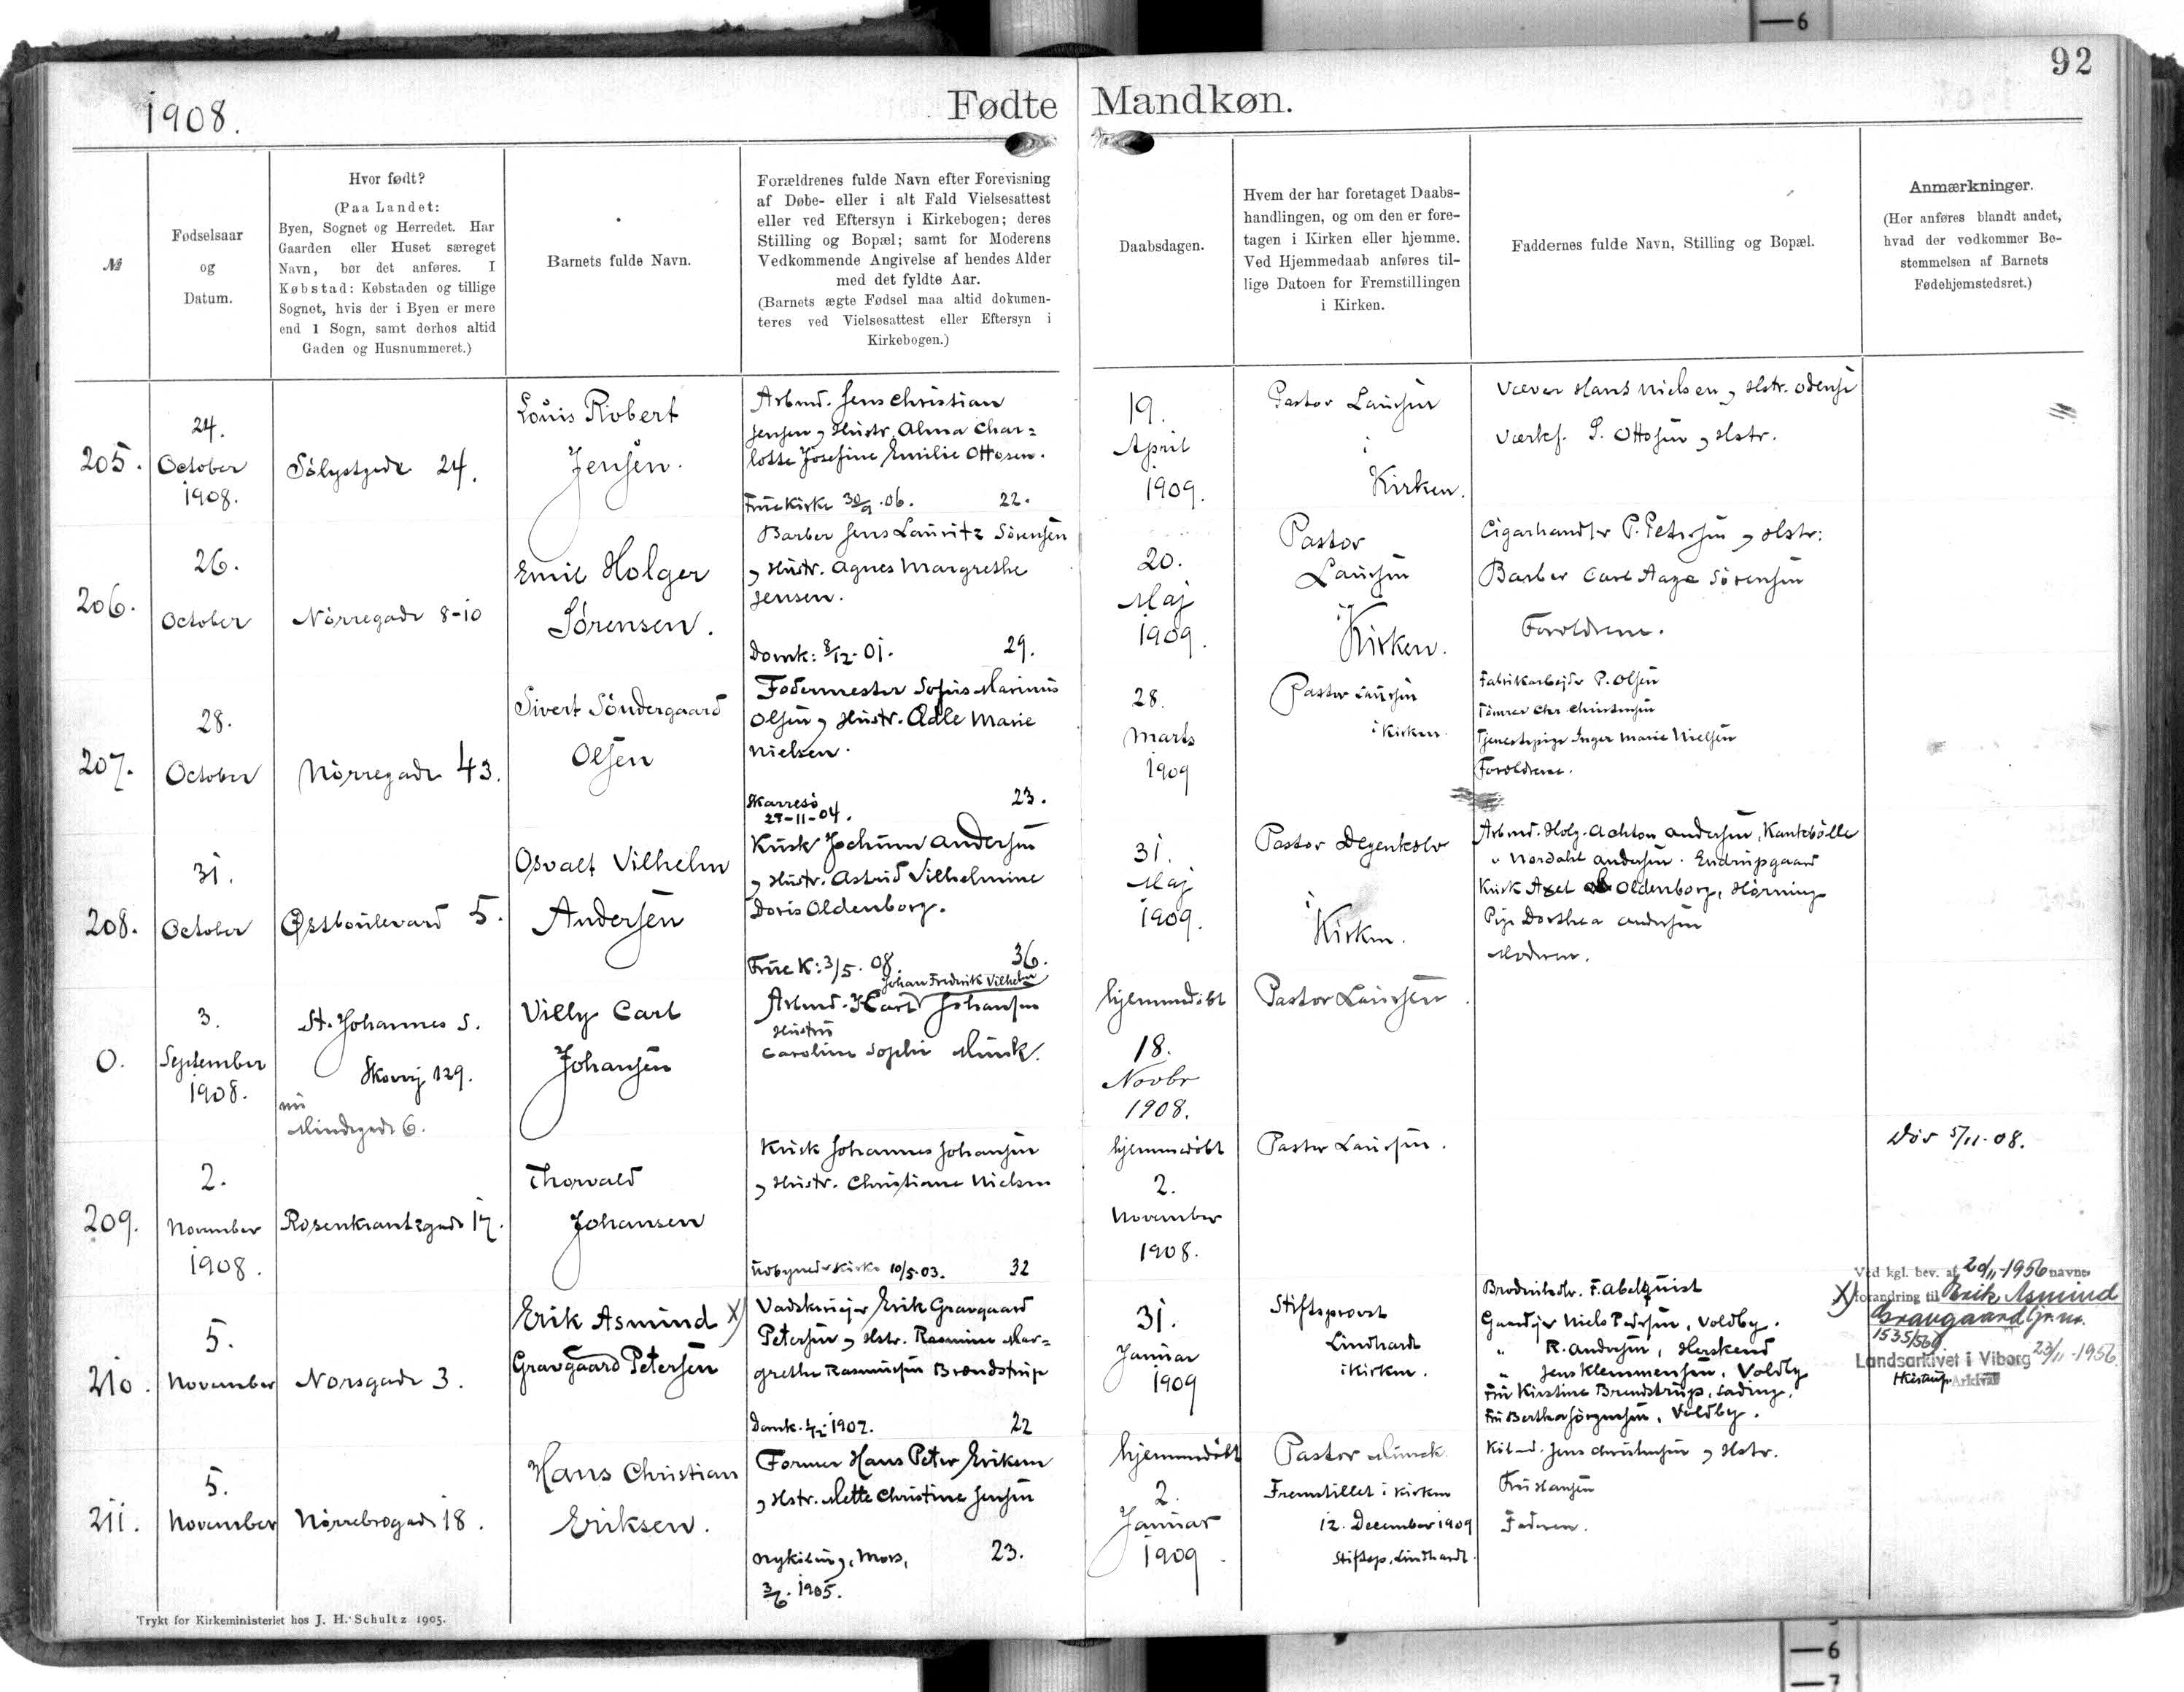 6
92
1908.
Fødte Mandkøn.
№
Fødselsaar
og
Datum.
Hvor født?
(Paa Landet:
Byen, Sognet og Herredet. Har
Gaarden eller Huset særeget
Navn, bør det anføres. I
Købstad: Købstaden og tillige
Sognet, hvis der i Byen er mere
end 1 Sogn, samt derhos altid
Gaden og Husnummeret.)
Barnets fulde Navn.
Forældrenes fulde Navn efter Forevisning
af Døbe- eller i alt Fald Vielsesattest
eller ved Eftersyn i Kirkebogen; deres
Stilling og Bopæl; samt for Moderens
Vedkommende Angivelse af hendes Alder
med det fyldte Aar.
(Barnets ægte Fødsel maa altid dokumen-
teres ved Vielsesattest eller Eftersyn i
Kirkebogen.)
Daabsdagen.
Hvem der har foretaget Daabs-
handlingen, og om den er fore-
tagen i Kirken eller hjemme.
Ved Hjemmedaab anføres til-
lige Datoen for Fremstillingen
i Kirken.
Faddernes fulde Navn, Stilling og Bopæl.
Anmærkninger.
(Her anføres blandt andet,
hvad der vedkommer Be-
stemmelsen af Barnets
Fødehjemstedsret.)
205.
24.
October
1908.
Sølystgade 24.
Louis Robert
Jensen.
Arbmd. Jens Christian
Jensen og Hustr. Alma Char=
lotte Josefine Emilie Ottosen.
Frue Kirke 30/9.06. 22.
19.
April
1909.
Pastor Laursen
i
Kirken.
Væver Hans Nielsen og Hstr. Odense
Værkf. S. Ottosen og Hstr.
206.
26.
October
Nørregade 8-10
Emil Holger
Sørensen.
Barber Jens Lauritz Sørensen
og Hustr. Agnes Margrethe
Jensen.
Domk: 8/12-01. 29.
20.
Maj
1909.
Pastor
Laursen
i
Kirken.
Cigarhandler P. Petersen og Hstr:
Barber Carl Aage Sørensen
Forældrene.
207.
28.
October
Nørregade 43.
Sivert Søndergaard
Olsen
Fodermester Sofus Marinus
Olsen og Hustr. Adle Marie
Nielsen.
Skarresø
27-11-04. 23.
28.
Marts
1909
Pastor Laursen
i Kirken.
Fabrikarbejder P. Olsen
Tømrer Chr. Christensen
Tjenestepige Inger Marie Nielsen
Forældrene.
208.
31.
October
Østboulevard 5.
Osvalt Vilhelm
Andersen
Kusk Jochum Andersen
og Hustr. Astrid Vilhelmine
Doris Oldenborg.
Frue K: 3/5. 08. 36.
31.
Maj
1909.
Pastor Degenkolv
i
Kirken.
Arbmd. Holg. Achton Andersen, Kankbølle
" Nordahl Andersen. Endrupgaard
Kusk Axel Oldenborg, Hørning
Pige Dorthea Andersen
Moderen.
0.
3.
September
1908.
St. Johannes S.
Skovvej 129.
nu
Mindegade 6.
Villy Carl
Johansen
Johan Fredrik Vilhelm
Arbmd. Karl Johansen
Hustru
Caroline Sophie Munk.
hjemmedøbt
18.
Novbr
1908.
Pastor Laursen
209.
2.
November
1908.
Rosenkrantzgade 17.
Thorvald
Johansen
Kusk Johannes Johansen
og Hustr. Christiane Nielsen
Udbyneder Kirke 10/5.03. 32
hjemmedøbt
2.
November
1908.
Pastor Laursen.
Død 5/11-08.
210.
5.
November
Norsgade 3.
Erik Asmund X)
Gravgaard Petersen
Vadskeriejer Erik Gravgaard
Petersen og Hstr. Rasmine Mar=
grethe Rasmussen Brændstrup
Domk. 1/12 1907. 22
31.
Januar
1909
Stiftsprovst
Lindhardt
i Kirken.
Broderihdlr. F. Abelquist
Gaardejer Niels Pedersen, Voldby.
" R. Andersen, Herskend
" Jens Klemmensen, Voldby
Fru Kirstine Brendstrup, Lading.
Fru Bertha Jørgensen, Voldby.
Ved kgl. bev. af 20/11-1956 navne-
X) forandring til Erik Asmund
Gravgaard Jr.nr.
1535/560.
Landsarkivet i Viborg 23/11-1956.
Arkivar
211.
5.
November
Nørrebrogade 18.
Hans Christian
Eriksen.
Former Hans Peter Eriksen
og Hstr. Mette Christine Jensen
Nykøbing, Mors, 23.
3/6. 1905.
hjemmedøbt
2.
Januar
1909.
Pastor Munck.
Fremstillet i Kirken
12. December 1909
Stiftsp. Lindhardt.
Jens Christensen og Hstr.
Fru Hansen
Faderen.
Trykt for Kirkeministeriet hos J. H. Schultz 1905.
6
7